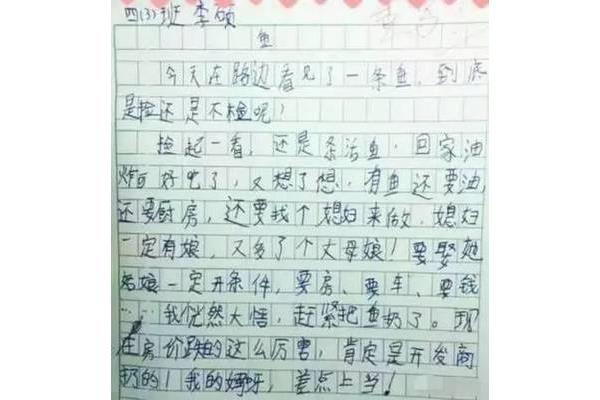 四(3)班 李硕
鱼
今天在路边看见了一条鱼，到底
是捡还是不捡呢！
捡起一看，还是条活鱼，回家油
炸可好吃了，又想了想，有鱼还要油，
还要厨房，还要找个媳妇来做，媳妇
一定有娘，又多了个丈母娘！要娶她
姑娘一定开条件，要房、要车、要钱
……我恍然大悟，赶紧把鱼扔了。现
在房价跌的这么厉害，肯定是开发商
扔的！我的妈呀，差点上当！